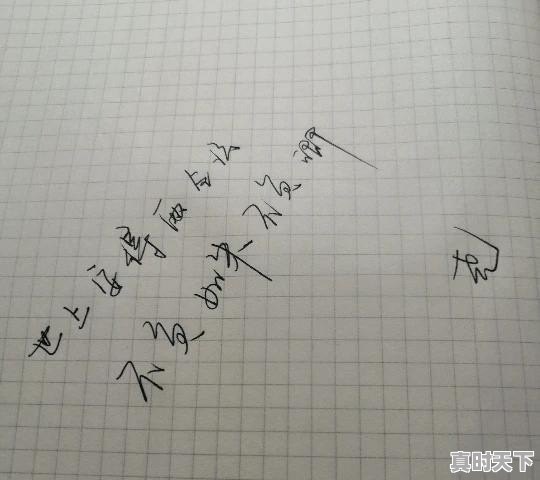 世上安得两全法
不负如来不负卿
真时天下